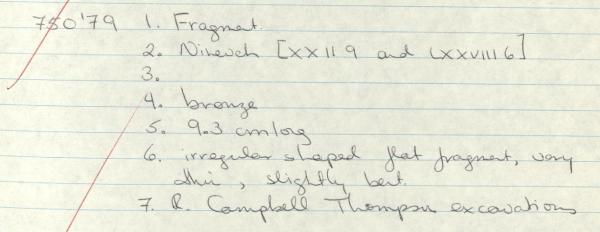 750'79 1. Fragment.
2. Nineveh [XXII 9 and LXXVIII 6]
3.
4. bronze
5. 9.3 cm long
6. irregular shaped flat fragment, very
thin, slightly bent.
7. R. Campbell Thompson excavations